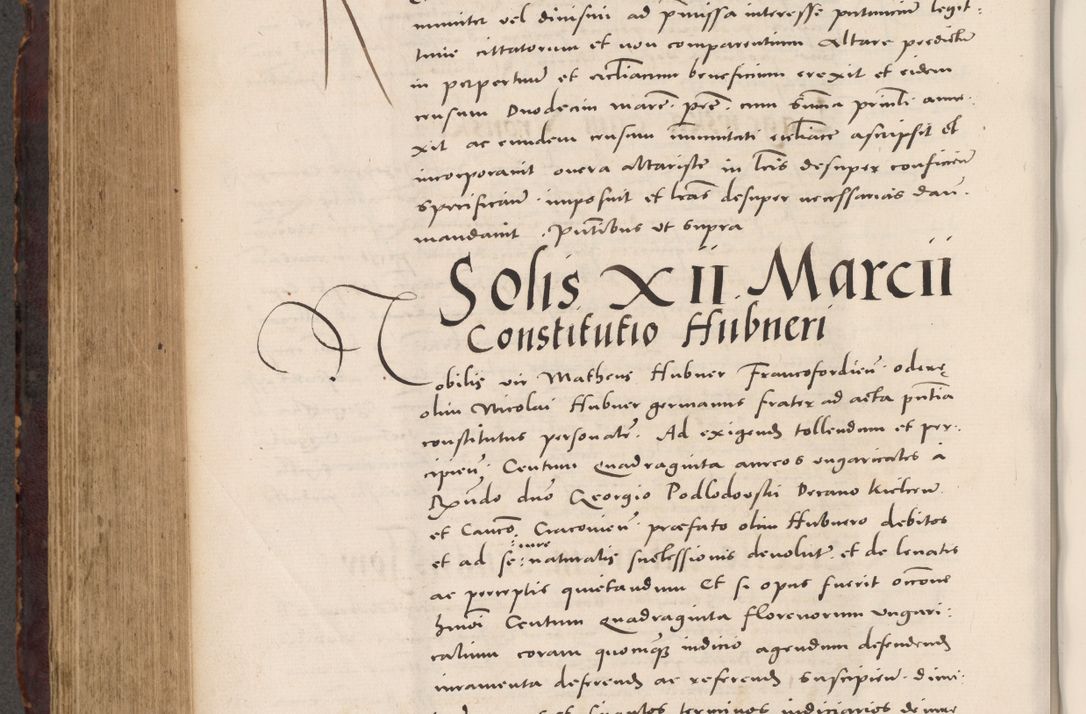 muniter vel divisim ad pmissa interesse putancium legit:
time cittatorum et non comparentium Altare predictu
in perpetuu et ecclĩaticum beneficium erexit et eidem
censum Duodecim marc̃. pec̃. cum suma princli. anne.
xit ac eundem censum imunitati ecclĩace ascripsit et
incorporauit onera altariste in lris desuper conficien
specifican̄. imposuit et lras desuper necessarias dari.
mandauit . Pñtibus vt supra
Solis XII. Marcii
Constitutio Hubneri
Nobilis vir Matheus Hubner Francofordien̄. oderę
olim Nicolai Hubner germanus frater ad acta pñtia
constitutus personalr̄. Ad exigend tollendum et per-
cipien̄. Centum Quadraginta aureos ungaricales a
Rṇdo dno Georgio Podlodowski Decano Kielcen
et Canco Cracouien̄. præfato olim Hubnero debitos
et ad se: iure naturalis successionis deuolut. et de leuatis
ac perceptis quietandum Et si opus fuerit occone
hmoi Centum Quadraginta florenorum ungari:
calium coram quocuq iudicio agendum defendend
iuramenta deferend ac referend suscipien. dimi:
et singulos terminos iudiciarios de iure